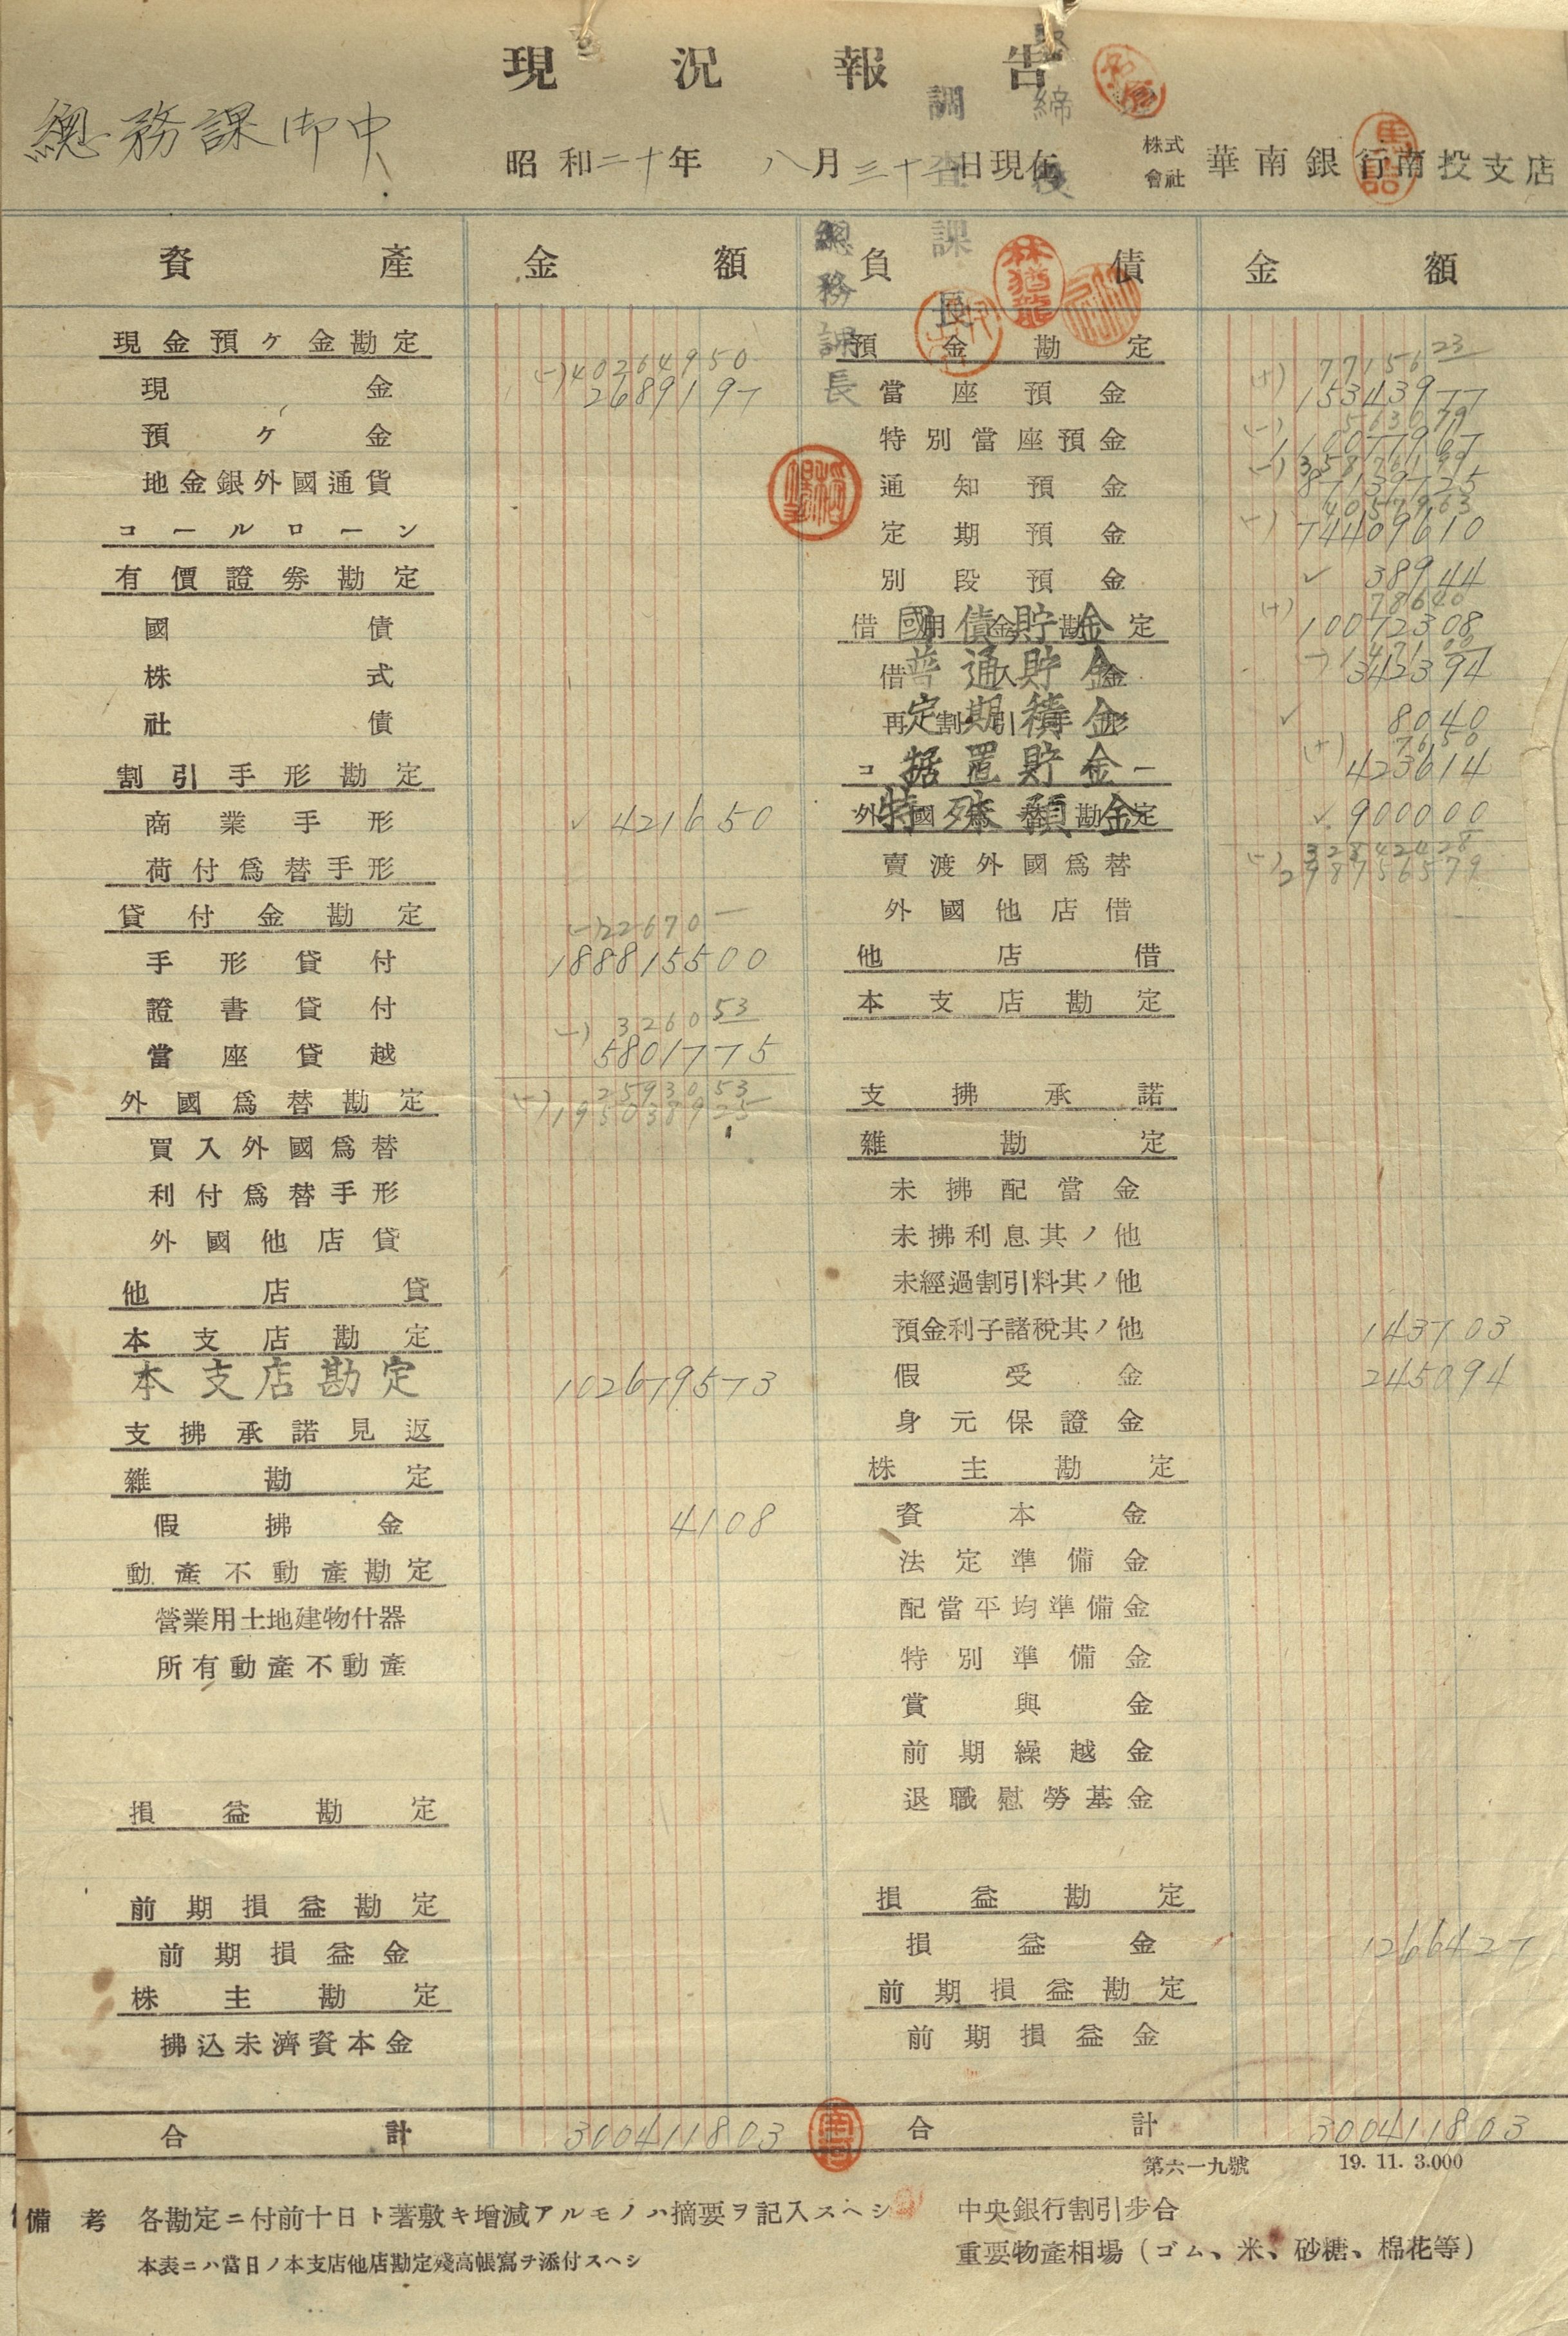 現況報告
總務課御中
昭和二十年八月三十一日現在
株式會社 華南銀行南投支店
取締役
調査課長
總務課長
林猶龍
資產 金額 負債 金額
現金預ケ金勘定 (-)40264950 預金勘定 (+)7715623
現金 2689197 當座預金 15343977
(-)563079
預ケ金 特別當座預金 110077967
(-)35876199
地金銀外國通貨 通知預金 87139725
(-)4057963
コールローン 定期預金 74409610
有價證券勘定 別段預金 ✓ 38944
(+)78640
國債 借用金勘定 國債貯金 10072308
(-)147100
株式 借入金 普通貯金 342394
社債 再割引手形 定期積金 ✓ 8040
(+)7650
割引手形勘定 コールマネー 据置貯金 423614
商業手形 ✓ 421650 外國爲替勘定 特殊預金 ✓ 900000
(-)32842428
荷付爲替手形 賣渡外國爲替 298756579
貸付金勘定 (-)22670— 外國他店借
手形貸付 188815500 他店借
證書貸付 (-)326053 本支店勘定
當座貸越 5801775
(-)2593053
外國爲替勘定 195038925 支拂承諾
買入外國爲替 雜勘定
利付爲替手形 未拂配當金
外國他店貸 未拂利息其ノ他
他店貸 未經過割引料其ノ他
本支店勘定 預金利子諸稅其ノ他 143703
本支店勘定 102679573 假受金 245094
支拂承諾見返 身元保證金
雜勘定 株主勘定
假拂金 4108 資本金
動產不動產勘定 法定準備金
營業用土地建物什器 配當平均準備金
所有動產不動產 特別準備金
賞與金
前期繰越金
損益勘定 退職慰勞基金
前期損益勘定 損益勘定
前期損益金 損益金 1266427
株主勘定 前期損益勘定
拂込未濟資本金 前期損益金
合計 300411803 合計 300411803
第六一九號 19. 11. 3.000
備考 各勘定ニ付前十日ト著敷キ增減アルモノハ摘要ヲ記入スヘシ 中央銀行割引步合
本表ニハ當日ノ本支店他店勘定殘高帳寫チ添付スヘシ 重要物產相場（ゴム、米、砂糖、棉花等）